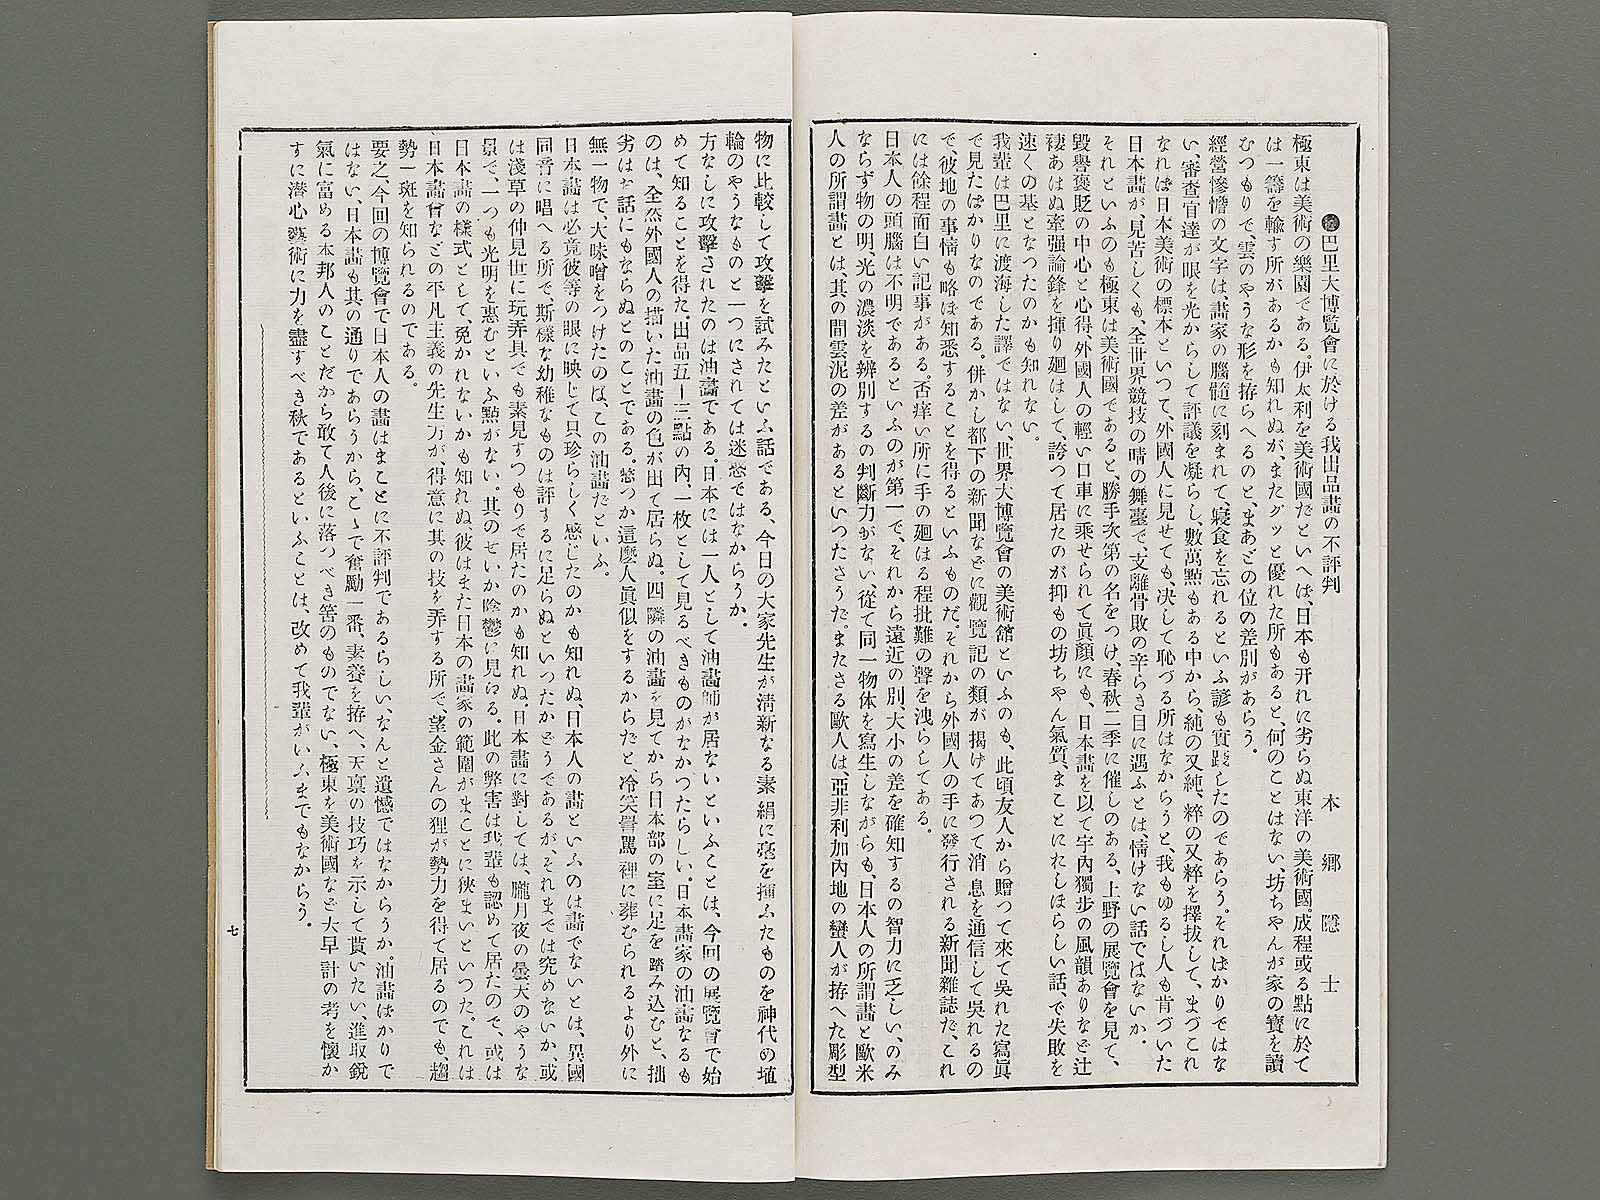 巴里大博覽會に於ける我出品畫の不評判
本郷隱士
極東は美術の樂園である。伊太利を美術國だといへば、日本も亦れに劣らぬ東洋の美術國成程或る點に於て
は一籌を輸す所があるかも知れぬが、またグッと優れた所もあると、何のことはない、坊ちやんが家の寶を讀
むつもりで、雲のやうな形を拵らへるのと、まあどの位の差別があらう。
經營慘憺の文字は、畫家の腦髓に刻まれて、寢食を忘れるといふ諺も實踐したのであらう。そればかりではな
い、審査官達が眼を光からして評議を凝らし、數萬點もある中から、純の又純、粹の又粹を擇拔して、まづこれ
なれば日本美術の標本といつて、外國人に見せても、决して恥づる所はなからうと、我もゆるし人も肯づいた
日本畫が、見苦しくも、全世界競技の晴の舞臺で、支離骨敗の辛らき目に遇ふとは、情けない話ではないか。
それといふのも極東は美術國であると、勝手次第の名をつけ、春秋二季に催しのある、上野の展覽會を見て、
毀譽褒貶の中心と心得、外國人の輕い口車に乘せられて眞顏にも、日本畫を以て宇內獨步の風韻ありなど辻
褄あはぬ牽强論鋒を揮り廻はして、誇つて居たのが抑もの坊ちやん氣質、まことにれしほらしい話、で失敗を
速くの基となつたのかも知れない。
我輩は巴里に渡海した譯ではない、世界大博覽會の美術館といふのも、此頃友人から贈つて來て吳れた寫眞
で見たばかりなのである。併かし都下の新聞などに觀覽記の類が揭げてあつて消息を通信して吳れるの
で、彼地の事情も略ぼ知悉することを得るといふものだ。それから外國人の手に發行される新聞雜誌だ、これ
には餘程面白い記事がある。否痒い所に手の廻はる程批難の聲を洩らしてある。
日本人の頭腦は不明であるといふのが第一で、それから遠近の別、大小の差を確知するの智力に乏しい、のみ
ならず物の明、光の濃淡を辨別するの判斷力がない從て同一物体を寫生しながらも、日本人の所謂畫と歐米
人の所謂畫とは、其の間雲泥の差があるといつたさうだ。またさる歐人は、亞非利加內地の蠻人が拵へた彫型
物に比較して攻擊を試みたといふ話である、今日の大家先生が淸新なる素絹に毫を揮ふたものを神代め埴
輪のやうなものと一つにされては迷惑ではなからうか。
方なしに攻擊されたのは油畵である。日本には一人として油畵師が居ないといふことは、今回の展覽會で始
めて知ることを得た。出品五十三點の內、一枚として見るべきものがなかつたらしい。日本畵家の油畵なるも
のは、全然外國人の描いた油畵の色が出て居らぬ。四隣の油畵を見てから日本部の室に足を踏み込むと、拙
劣はお話にもならぬとのことである。惣つか這麼人眞似をするからだと、冷笑詈罵裡に葬むられるより外に
無一物で、大味噌をつけたのは、この油畵だといふ。
日本畵は必竟彼等の眼に映じて只珍らしく感じたのかも知れぬ、日本人の畵といふのは畵でないとは、異國
同音に唱へる所で、斯樣な幼稚なものは評するに足らぬといつたかどうであるが、それまでは究めないか、或
は淺草の仲見世に玩弄具でも素見すつもりで居たのかも知れぬ。日本畵に對しては、朧月夜の曇天のやうな
景で、一つも光明を惠むといふ點がない。其のせいか陰鬱に見ゆる。此の弊害は我輩も認めて居たので、或は
日本畵の樣式として、免かれないかも知れぬ、彼はまた日本の畵家の範圍がまことに狹まいといつた。これは
日本畵會などの平凡主義の先生方が得意に其の技を弄する所で、望金さんの狸が勢力を得て居るのでも、趨
勢一斑を知られるのである。
要之、今回の博覽會で日本人の畵はまことに不評判であるらしい、なんと遺憾ではなからうか。油畵ばかりで
はない、日本畵も其の通りであらうから、こゝで奮勵一番、妻養を拵へ、天禀の技巧を示して貰いたい、進取銳
氣に富める本邦人のことだから敢て人後に落つべき筈のものでない、極東を美術國など大早計の考を懷か
すに潜心藝術に力を盡すべき秋であるといふことは、改めて我輩がいふまでもなからう。
七